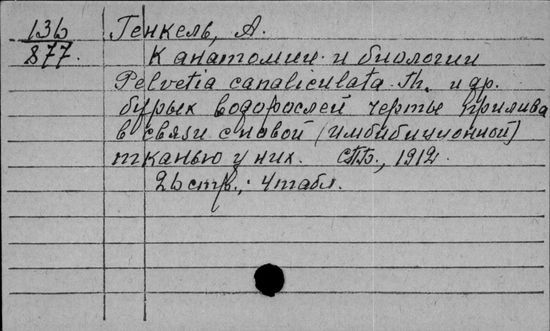 136 Генкель, А.
877. К анатомии и биологии
Pelvetia canaliculata Th. и др.
бурых водорослей черты прилива
в связи с новой (имбибиционной)
тканью у них. СПБ., 1912.
26 стр.; 4 табл.